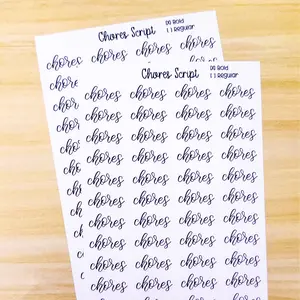 Chores Script
[X] Bold
[ ] Regular
chores chores chores chores
Chores Script
[X] Bold
[ ] Regular
chores chores chores chores
chores chores chores chores
chores chores chores chores
chores chores chores chores
chores chores chores chores
chores chores chores chores
chores chores chores chores
chores chores chores chores
chores chores chores chores
chores chores chores chores